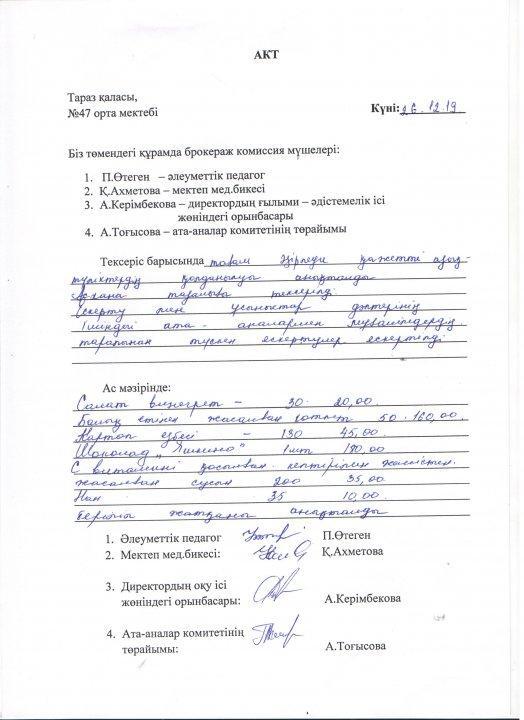 АКТ
Тараз қаласы,
№47 орта мектебі
Күні: 26.12.19
Біз төмендегі құрамда брокераж комиссия мүшелері:
1. П.Өтеген – әлеуметтік педагог
2. Қ.Ахметова – мектеп мед.бикесі
3. А.Керімбекова – директордың ғылыми – әдістемелік ісі
жөніндегі орынбасары
4. А.Тоғысова – ата-аналар комитетінің төрайымы
Тексеріс барысында тағам әзірлеуде қажетті азық-
түліктердің қолданылуы анықталды
Асхана тазалығы тексерілді.
Ескерту мен ұсыныстар дәптерінің
ішіндегі ата - аналармен мұғалімдердің
тарапынан түскен ескертулер ескертілді
Ас мәзірінде:
Салат винегрет – 30. 20,00.
Балық етінен жасалған котлет 50. 160,00.
Картоп езбесі – 130 45,00.
Шоколад „Яшкино" 1 шт 180,00.
С витаминi қосылған кептірілген жемістен
жасалған сусын 200 35,00.
Нан 35 10,00.
берілік жатқаны анықталды
1. Әлеуметтік педагог П.Өтеген
2. Мектеп мед.бикесі: Қ.Ахметова
3. Директордың оқу ісі
жөніндегі орынбасары: А.Керімбекова
4. Ата-аналар комитетінің
төрайымы: А.Тоғысова